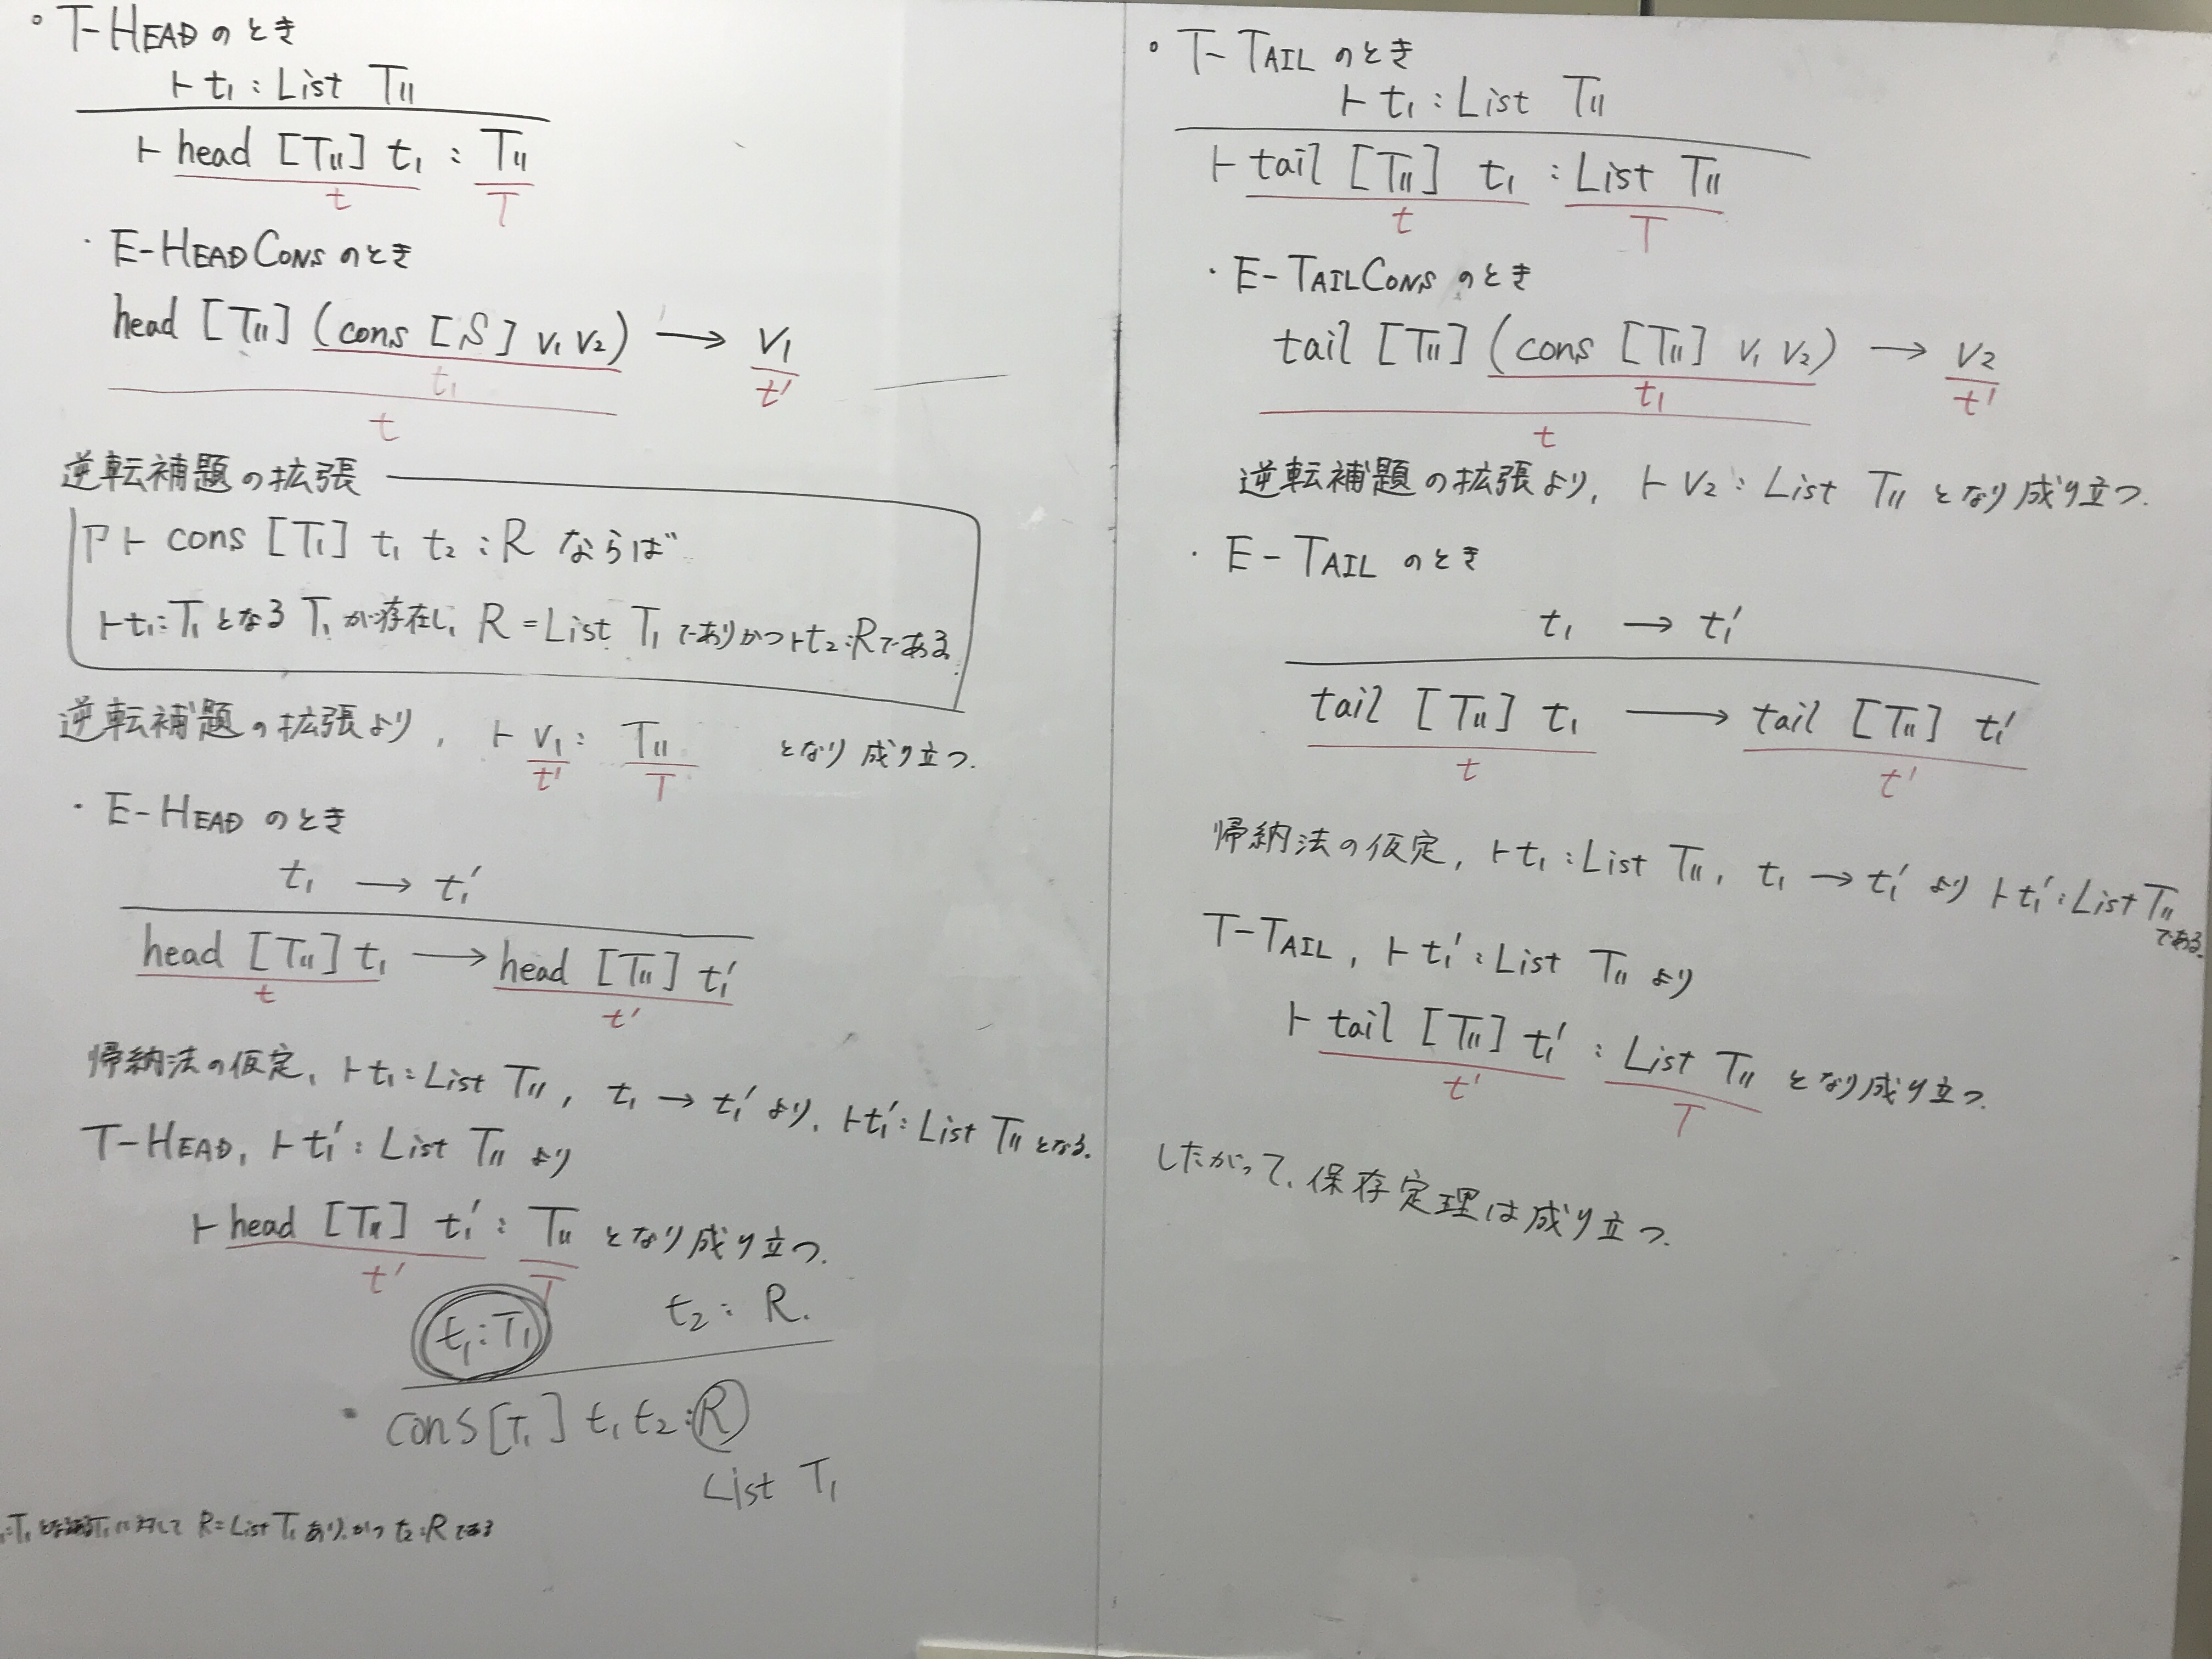 。T-HEADのとき
⊢ t₁ : List T₁₁
⊢ head [T₁₁] t₁ : T₁₁
t T
・E-HEADCONSのとき
head [T₁₁] (cons [S] v₁ v₂) → v₁
t₁ t'
t
逆転補題の拡張
Γ ⊢ cons [T₁] t₁ t₂ : R ならば
⊢ t₁ : T₁ となる T₁ が存在し、R = List T₁ でありかつ ⊢ t₂ : R である。
逆転補題の拡張より, ⊢ v₁ : T₁₁ となり成り立つ.
t' T
・E-HEADのとき
t₁ → t₁'
head [T₁₁] t₁ → head [T₁₁] t₁'
t t'
帰納法の仮定, ⊢ t₁ : List T₁₁, t₁ → t₁' より, ⊢ t₁' : List T₁₁ となる.
T-HEAD, ⊢ t₁' : List T₁₁ より
⊢ head [T₁₁] t₁' : T₁₁ となり成り立つ.
t' T
t₁ : T₁ t₂ : R.
・cons [T₁] t₁ t₂ : R
List T₁
に対して R = List T₁ あり, かつ t₂ : R である
。T-TAIL のとき
⊢ t₁ : List T₁₁
⊢ tail [T₁₁] t₁ : List T₁₁
t T
・E-TAILCONS のとき
tail [T₁₁] (cons [T₁₁] v₁ v₂) → v₂
t₁ t'
t
逆転補題の拡張より, ⊢ v₂ : List T₁₁ となり成り立つ.
・E-TAIL のとき
t₁ → t₁'
tail [T₁₁] t₁ → tail [T₁₁] t₁'
t t'
帰納法の仮定, ⊢ t₁ : List T₁₁, t₁ → t₁' より ⊢ t₁' : List T₁₁
である.
T-TAIL, ⊢ t₁' : List T₁₁ より
⊢ tail [T₁₁] t₁' : List T₁₁ となり成り立つ.
t' T
したがって, 保存定理は成り立つ.